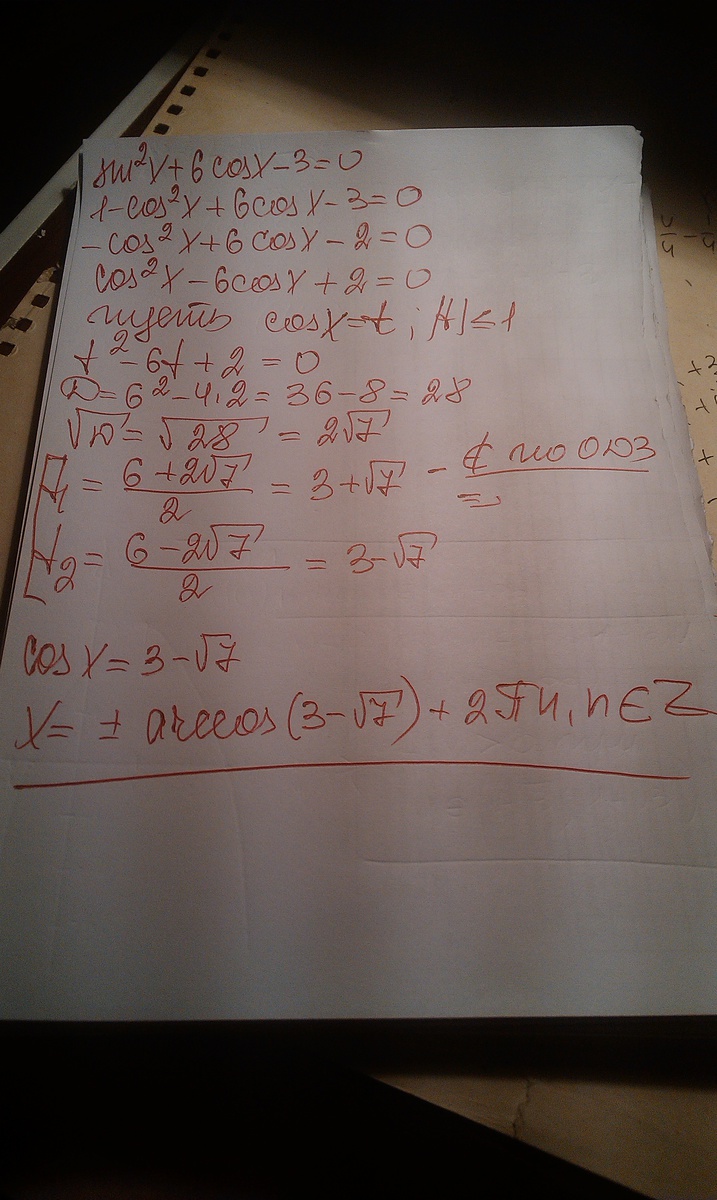 sin²x+6cosx-3=0
1-cos²x+6cosx-3=0
-cos²x+6cosx-2=0
cos²x-6cosx+2=0
пусть cosx=t; |t|≤1
t²-6t+2=0
D=6²-4·2=36-8=28
√D=√28=2√7
[t₁=(6+2√7)/2=3+√7 - ∉ по ОДЗ =>
t₂=(6-2√7)/2=3-√7
cosx=3-√7
x=±arccos(3-√7)+2πn, n∈Z